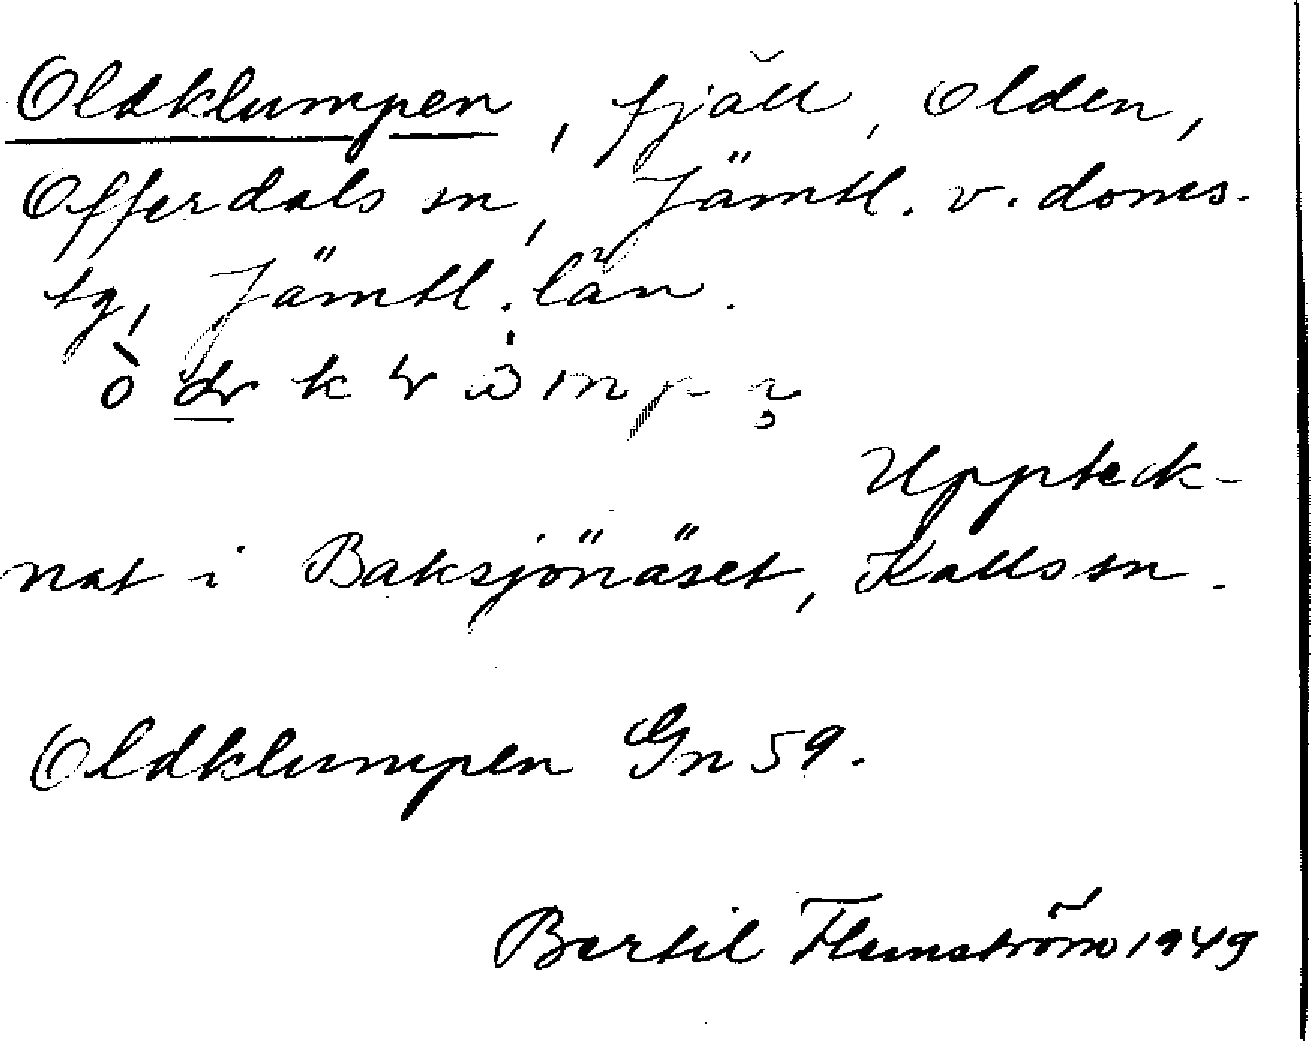 Oldklumpen, fjäll, Olden,
Offerdals sn, Jämtl. v. doms-
tg, Jämtl. län.
Uppteck-
nat i Baksjönäset, Kalls sn.
Oldklumpen Gn 59.
Bertil Flemström 1949